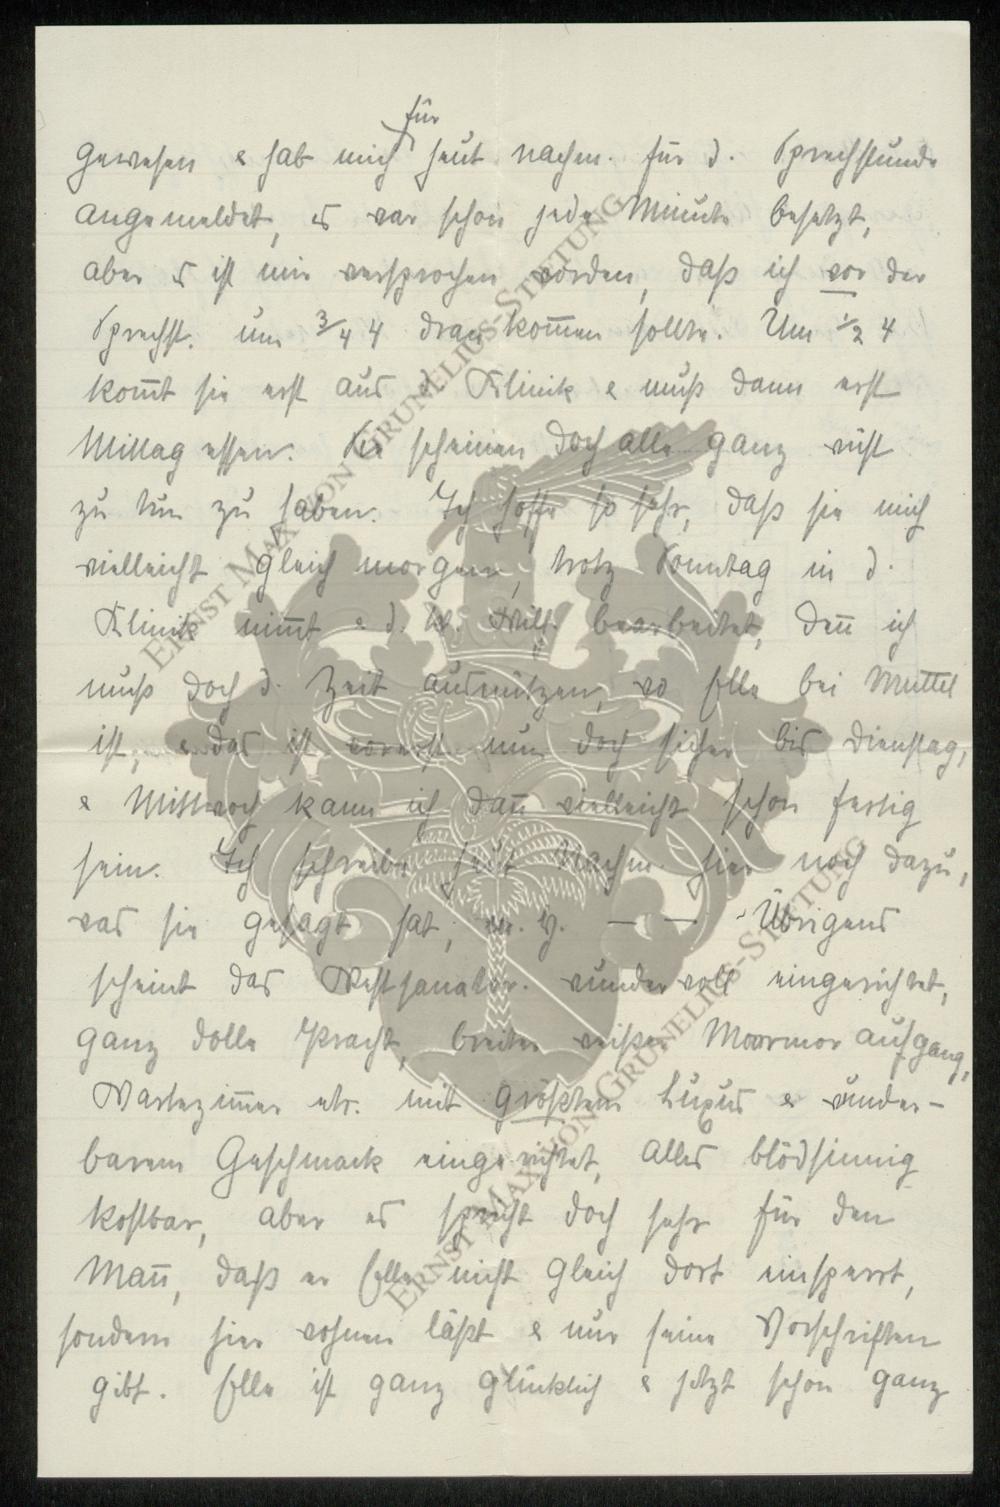 für
gewesen & hab mich heut nachm. für d. Sprechstunde
angemeldet, es war schon jede Minute besetzt,
aber es ist mir versprochen worden, daß ich vor der
Sprechst. um 3/4 4 dran kom̄en sollte. Um 1/2 4
kom̄t sie erst aus d. Klinik & muß dann erst
Mittag essen. Sie scheinen doch alle ganz wüst
zu tun zu haben. Ich hoffe so sehr, daß sie mich
vielleicht gleich morgen, trotz Sonntag in d.
Klinik nim̄t & d. bearbeitet, den̄ ich
muß doch d. Zeit ausnützen, wo Elle bei Muttel
ist, & das ist vorerst nun doch sicher bis Dienstag,
& Mittwoch kann ich dan̄ vielleicht schon fertig
sein. Ich schreibe heut Nachm. hier noch dazu,
was sie gesagt hat, — — Übrigens
scheint das Westsanator. wundervoll eingerichtet,
ganz dolle Pracht, breiter weißer Marmor aufgang,
Wartezim̄er etc. mit größtem Luxus & wunder-
barem Geschmack eingerichtet, alles blödsinnig
kostbar, aber es spricht doch sehr für den
Man̄, daß er Elle nicht gleich dort einsperrt,
sondern hier wohnen läßt & nur seine Vorschriften
gibt. Elle ist ganz glücklich & jetzt schon ganz
ERNST MAX VON GRUNELIUS-STIFTUNG
ERNST MAX VON GRUNELIUS-STIFTUNG